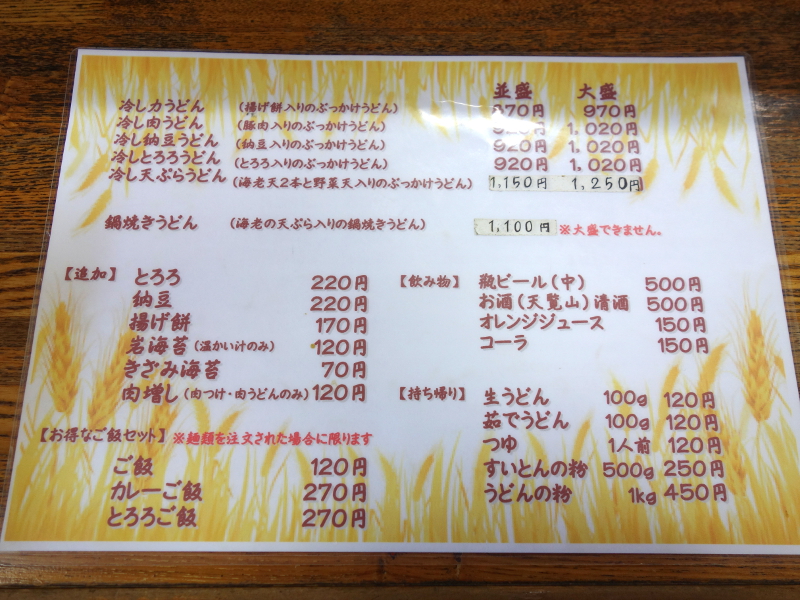 並盛 大盛
冷し力うどん (揚げ餅入りのぶっかけうどん) 870円 970円
冷し肉うどん (豚肉入りのぶっかけうどん) 920円 1,020円
冷し納豆うどん (納豆入りのぶっかけうどん) 920円 1,020円
冷しとろろうどん (とろろ入りのぶっかけうどん) 920円 1,020円
冷し天ぷらうどん (海老天2本と野菜天入りのぶっかけうどん) 1,150円 1,250円
鍋焼きうどん (海老の天ぷら入りの鍋焼きうどん) 1,100円 ※大盛できません。
【追加】 とろろ 220円
納豆 220円
揚げ餅 170円
岩海苔 (温かい汁のみ) 120円
きざみ海苔 70円
肉増し (肉つけ・肉うどんのみ) 120円
【お得なご飯セット】 ※麺類を注文された場合に限ります
ご飯 120円
カレーご飯 270円
とろろご飯 270円
【飲み物】 瓶ビール(中) 500円
お酒(天覧山)清酒 500円
オレンジジュース 150円
コーラ 150円
【持ち帰り】 生うどん 100g 120円
茹でうどん 100g 120円
つゆ 1人前 120円
すいとんの粉 500g 250円
うどんの粉 1kg 450円